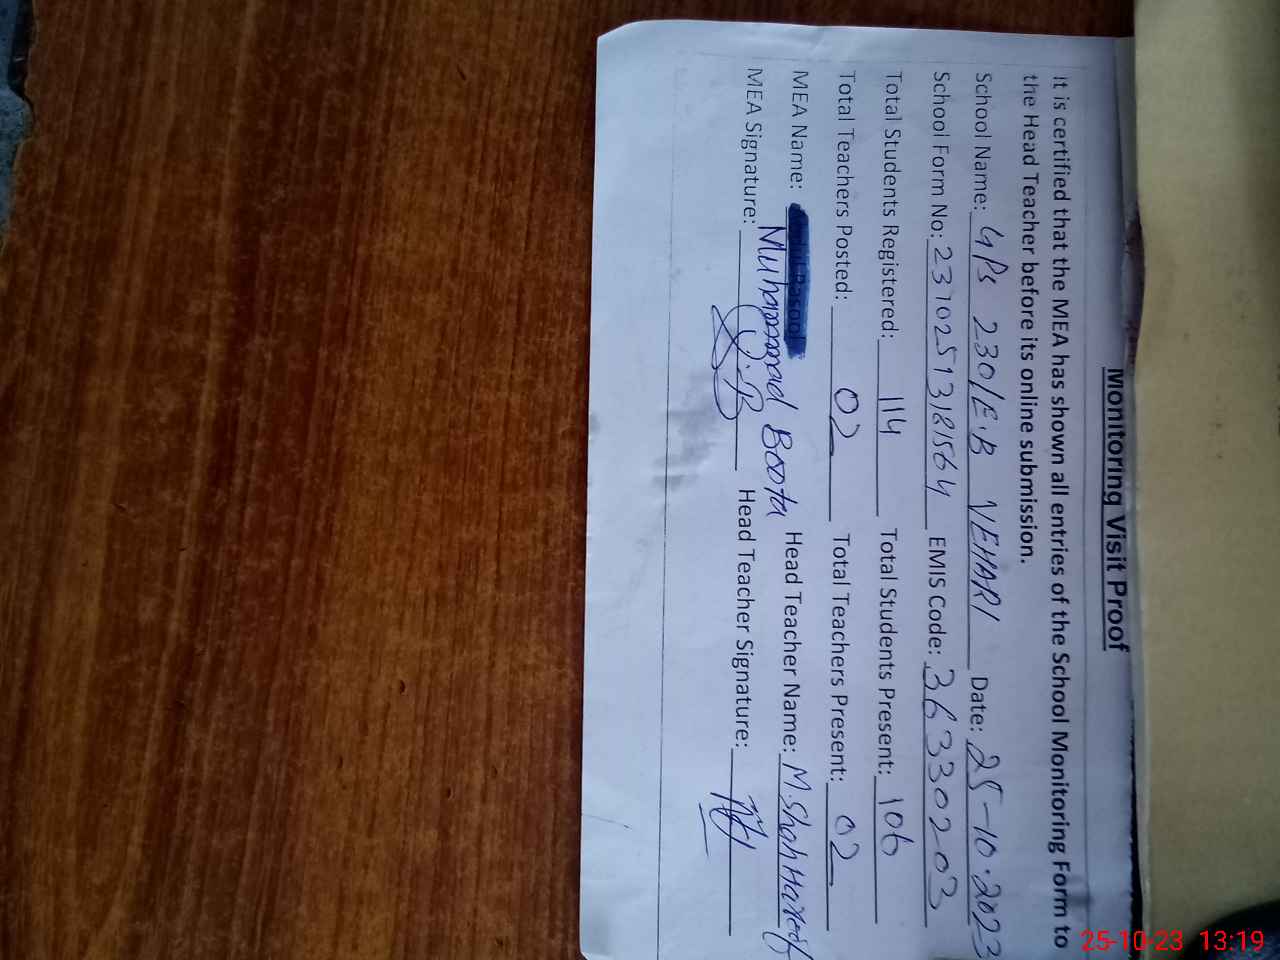 Monitoring Visit Proof
It is certified that the MEA has shown all entries of the School Monitoring Form to
the Head Teacher before its online submission.
School Name: GPS 230/E.B VEHARI Date: 25-10-2023
School Form No: 23102513181564 EMIS Code: 36330203
Total Students Registered: 114 Total Students Present: 106
Total Teachers Posted: 02 Total Teachers Present: 02
MEA Name: Muhammad Boota Head Teacher Name: M.Shah
MEA Signature: Head Teacher Signature:
25-10-23 13:19